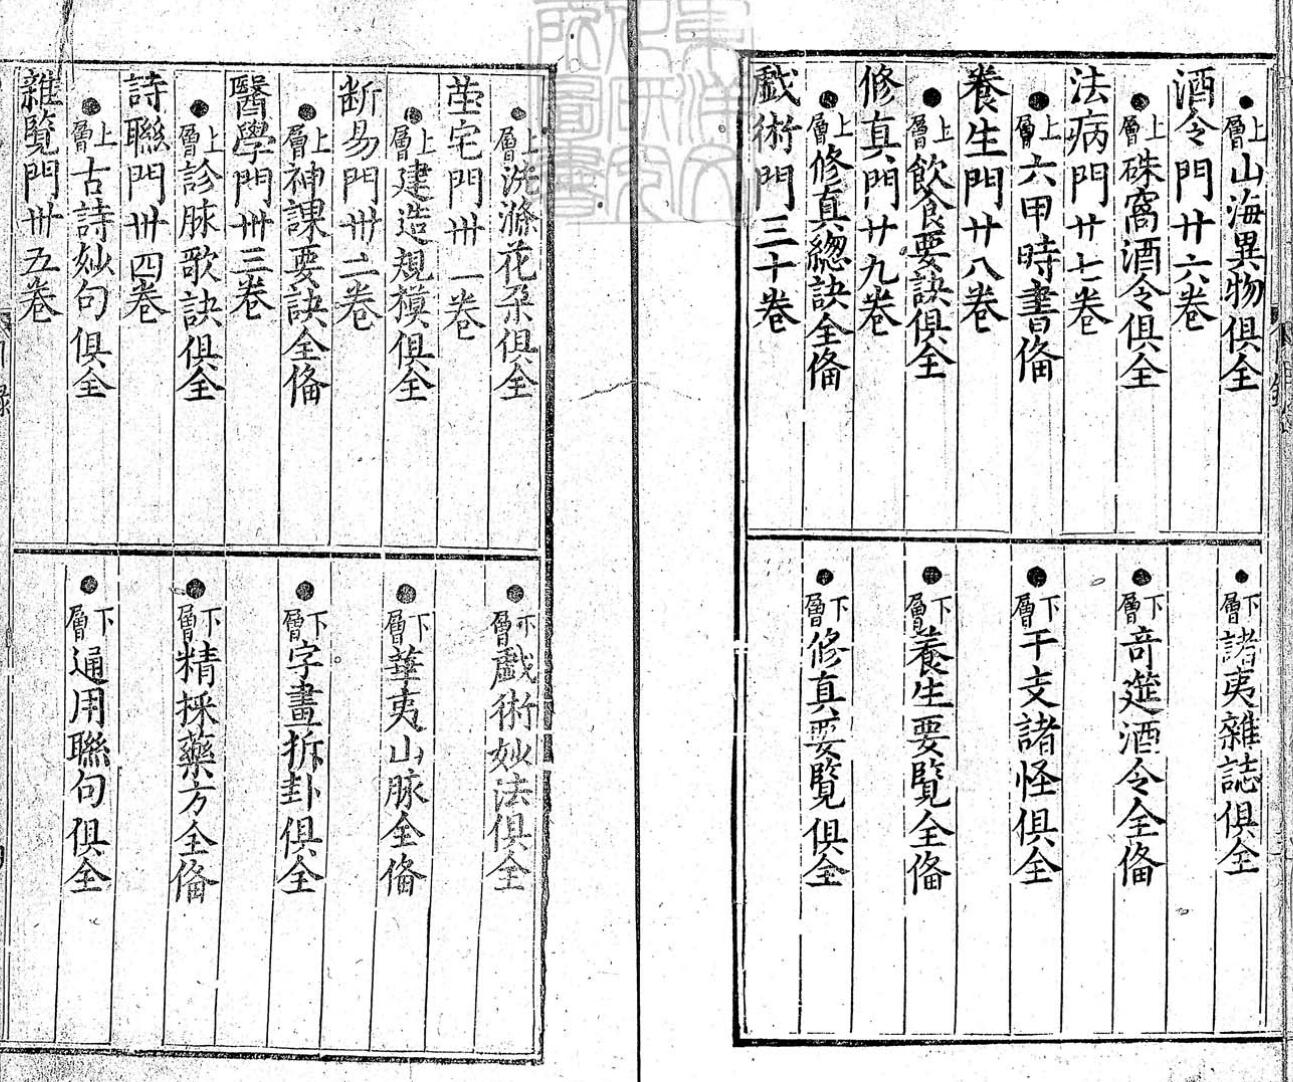 上層山海異物俱全
下層諸夷雜誌俱全
酒令門廿六卷
上層硃窩酒令俱全
下層竒筵酒令全俻
法病門廿七卷
上層六甲時書俻
下層干支諸怪俱全
養生門廿八卷
上層飲食要訣俱全
下層養生要覽全俻
修真門廿九卷
上層修真總訣全俻
下層修真要覽俱全
戲術門三十卷
上層洗滌花朶俱全
下層戲術妙法俱全
塋宅門卅一卷
上層建造規模俱全
下層華夷山脉全俻
断易門卅二卷
上層神課要訣全俻
下層字畫拆卦俱全
醫學門卅三卷
上層診脉歌訣俱全
下層精採藥方全俻
詩聯門卅四卷
上層古詩妙句俱全
下層通用聯句俱全
雜覽門卅五卷